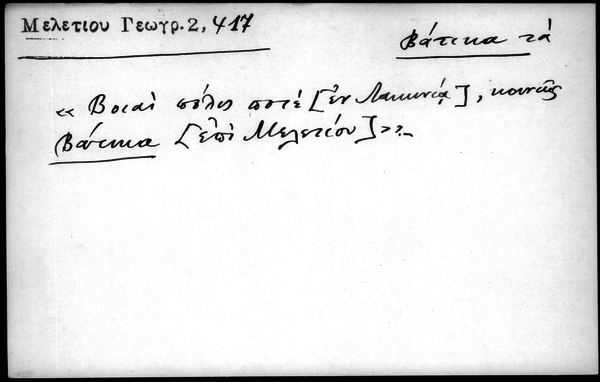 Μελετιου Γεωγρ. 2, 417
Βάτικα τά
« Βοιαὶ πόλις ποτέ [ἐν Λακωνίᾳ], κοινῶς
Βάτικα [ἐπὶ Μελετίου] ».